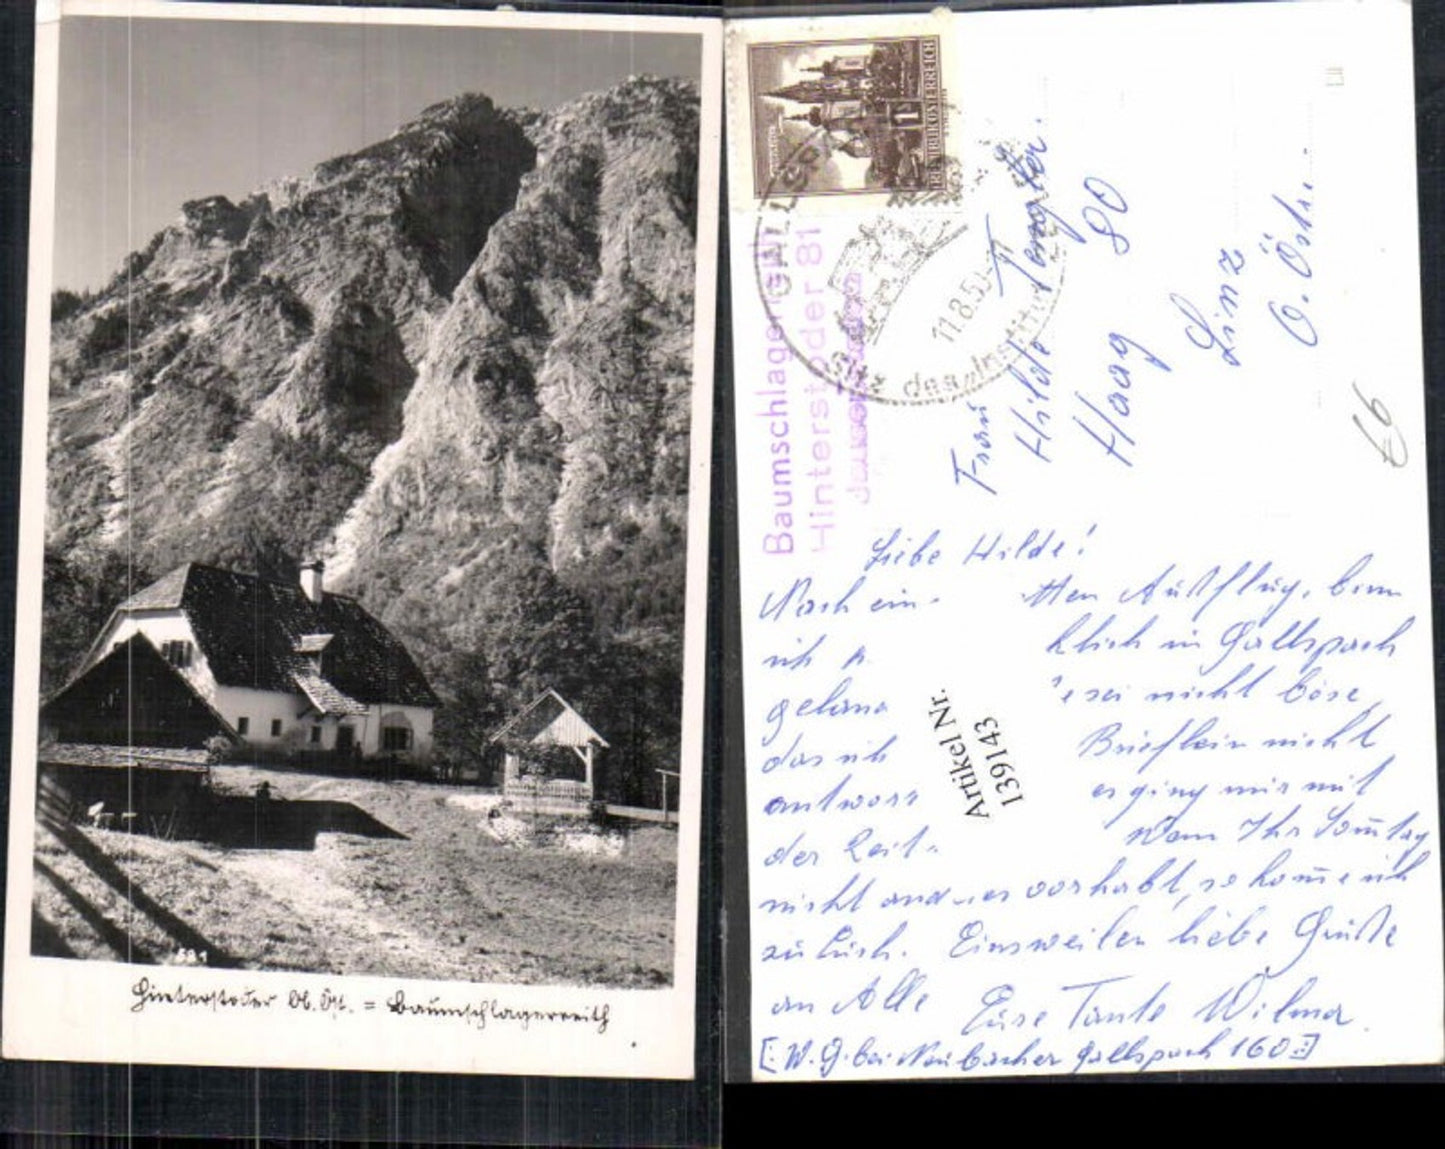 591
Hinterstoder Ob. Öst. = Baumschlagerreith
REPUBLIK ÖSTERREICH
1
GALLSPA
11.8.59-17
Sitz des „Institut
Baumschlagerreith
Hinterstoder 81
Frau
Hilde
Haag 80
Linz
O. Östr.
€6
Liebe Hilde!
Nach ein- tten Ausflug, bin
ich klich in Gallspach
gelan sei nicht böse,
das ich Brieflein nicht
antwor es ging mir mit
der Zeit Wenn Ihr Sonntag
nicht anderes vorhabt, so kom̄e ich
zu Euch. Einsweilen liebe Grüße
an Alle Eure Tante Wilma
[: W. G. bei Neubacher Gallspach 160 :]
Artikel Nr.
139143